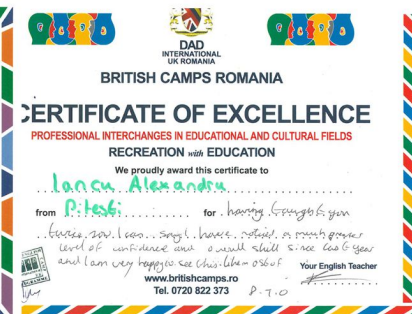 DAD
INTERNATIONAL
UK ROMANIA
BRITISH CAMPS ROMANIA
CERTIFICATE OF EXCELLENCE
PROFESSIONAL INTERCHANGES IN EDUCATIONAL AND CULTURAL FIELDS
RECREATION with EDUCATION
We proudly award this certificate to
Iancu Alexandru
from Pitesti for having taught you
twice now I can say I have noticed a much greater
level of confidence and overall skill since last year
and I am very happy to see this.
Your English Teacher
www.britishcamps.ro
Tel. 0720 822 373